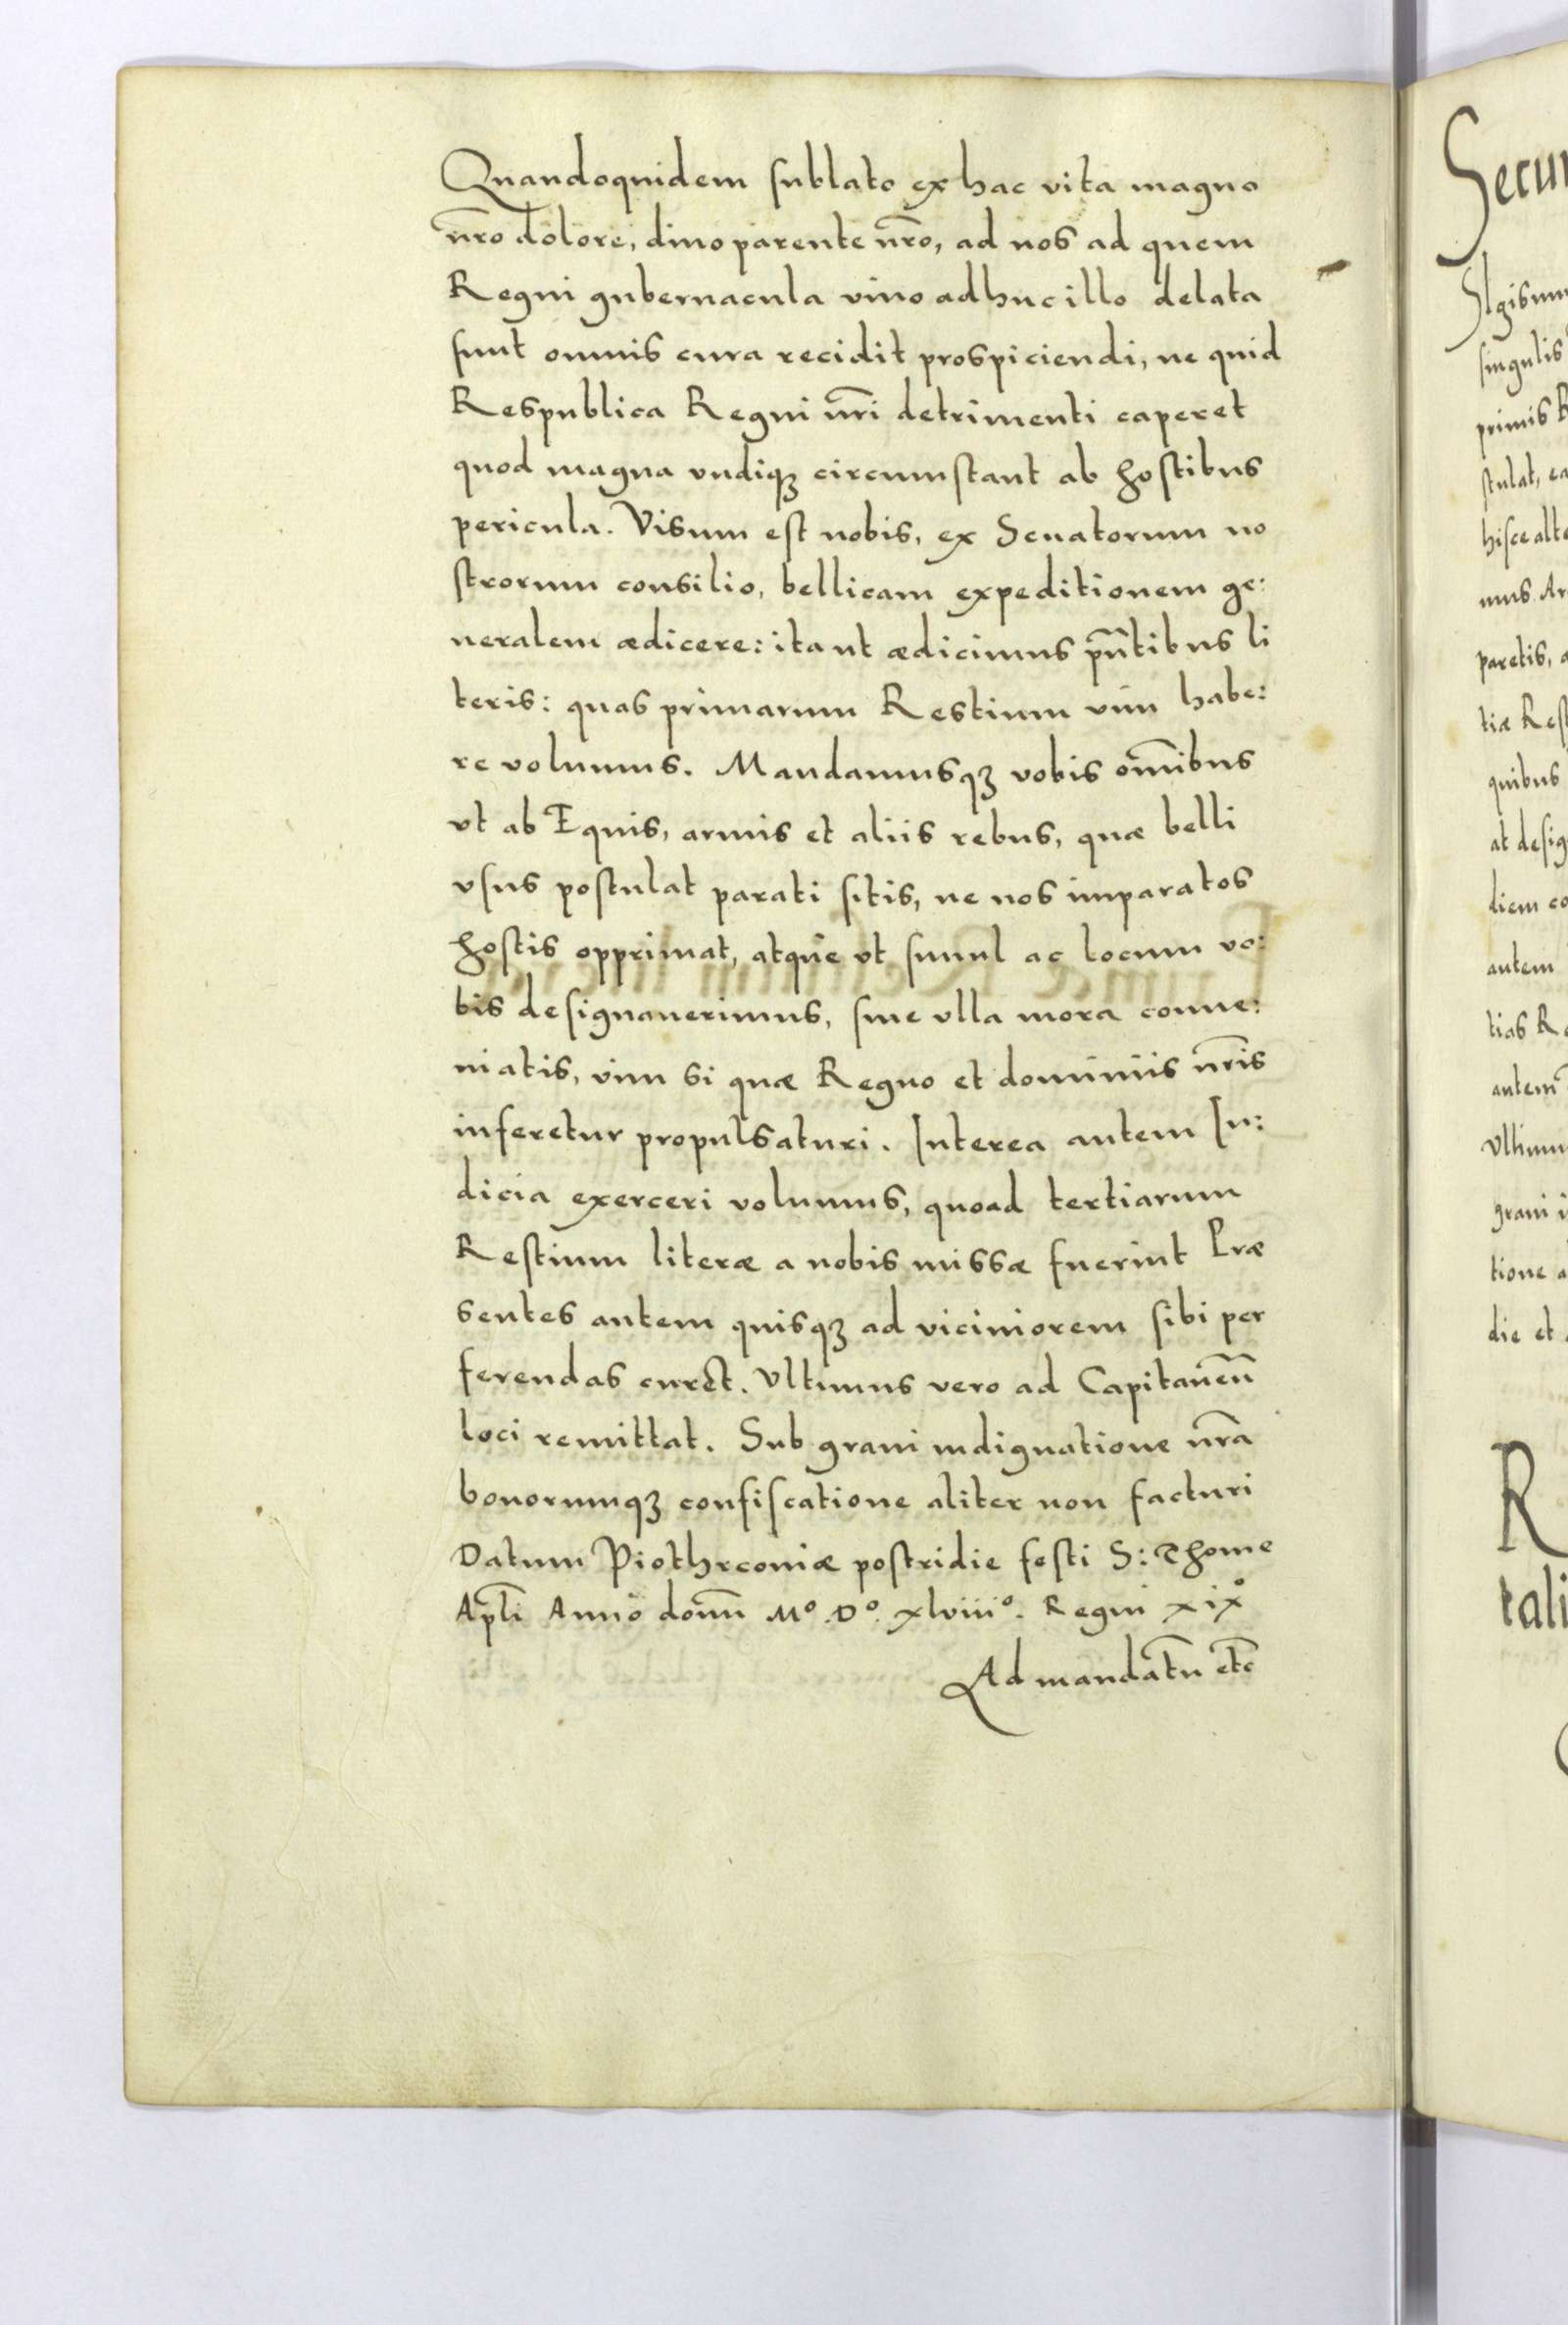 Quandoquidem sublato ex hac vita magno
nr̃o dolore, diuo parente nr̃o, ad nos ad quem
Regni gubernacula viuo adhuc illo delata
sunt omnis cura recidit prospiciendi, ne quid
Respublica Regni nr̃i detrimenti caperet
quod magna vndiqꝫ circumstant ab hostibus
pericula. Visum est nobis, ex Senatorum no
strorum consilio, bellicam expeditionem ge:
neralem ædicere: ita ut ædicimus pñtibus li
teris: quas primarum Restium vim habe:
re volumus. Mandamusqꝫ vobis om̃ibus
vt ab Equis, armis et aliis rebus, quæ belli
vsus postulat parati sitis, ne nos imparatos
hostis opprimat, atque vt simul ac locum vo:
bis designauerimus, sine vlla mora conue:
niatis, vim si quæ Regno et dominiis nr̃is
inferetur propulsaturi. Interea autem Iu:
dicia exerceri volumus, quoad tertiarum
Restium literæ a nobis missæ fuerint Præ
sentes autem quisqꝫ ad viciniorem sibi per
ferendas curet. Vltimus vero ad Capitaneũ
loci remittat. Sub graui indignatione nr̃a
bonorumqꝫ confiscatione aliter non facturi
Datum Piothrconiæ postridie festi S: Thome
Apl̃i Anno domĩ Mº. Dº. xlviiiº. Regni xixº
Ad mandatũ etc̃
Secu
singulis
primis R
stulat, ea
hisce alte
mus Ar
paretis, a
tiæ Rest
quibus
at desig
diem co
autem
tias R
autem
Vltimu
graui i
tione a
die et
R
tali